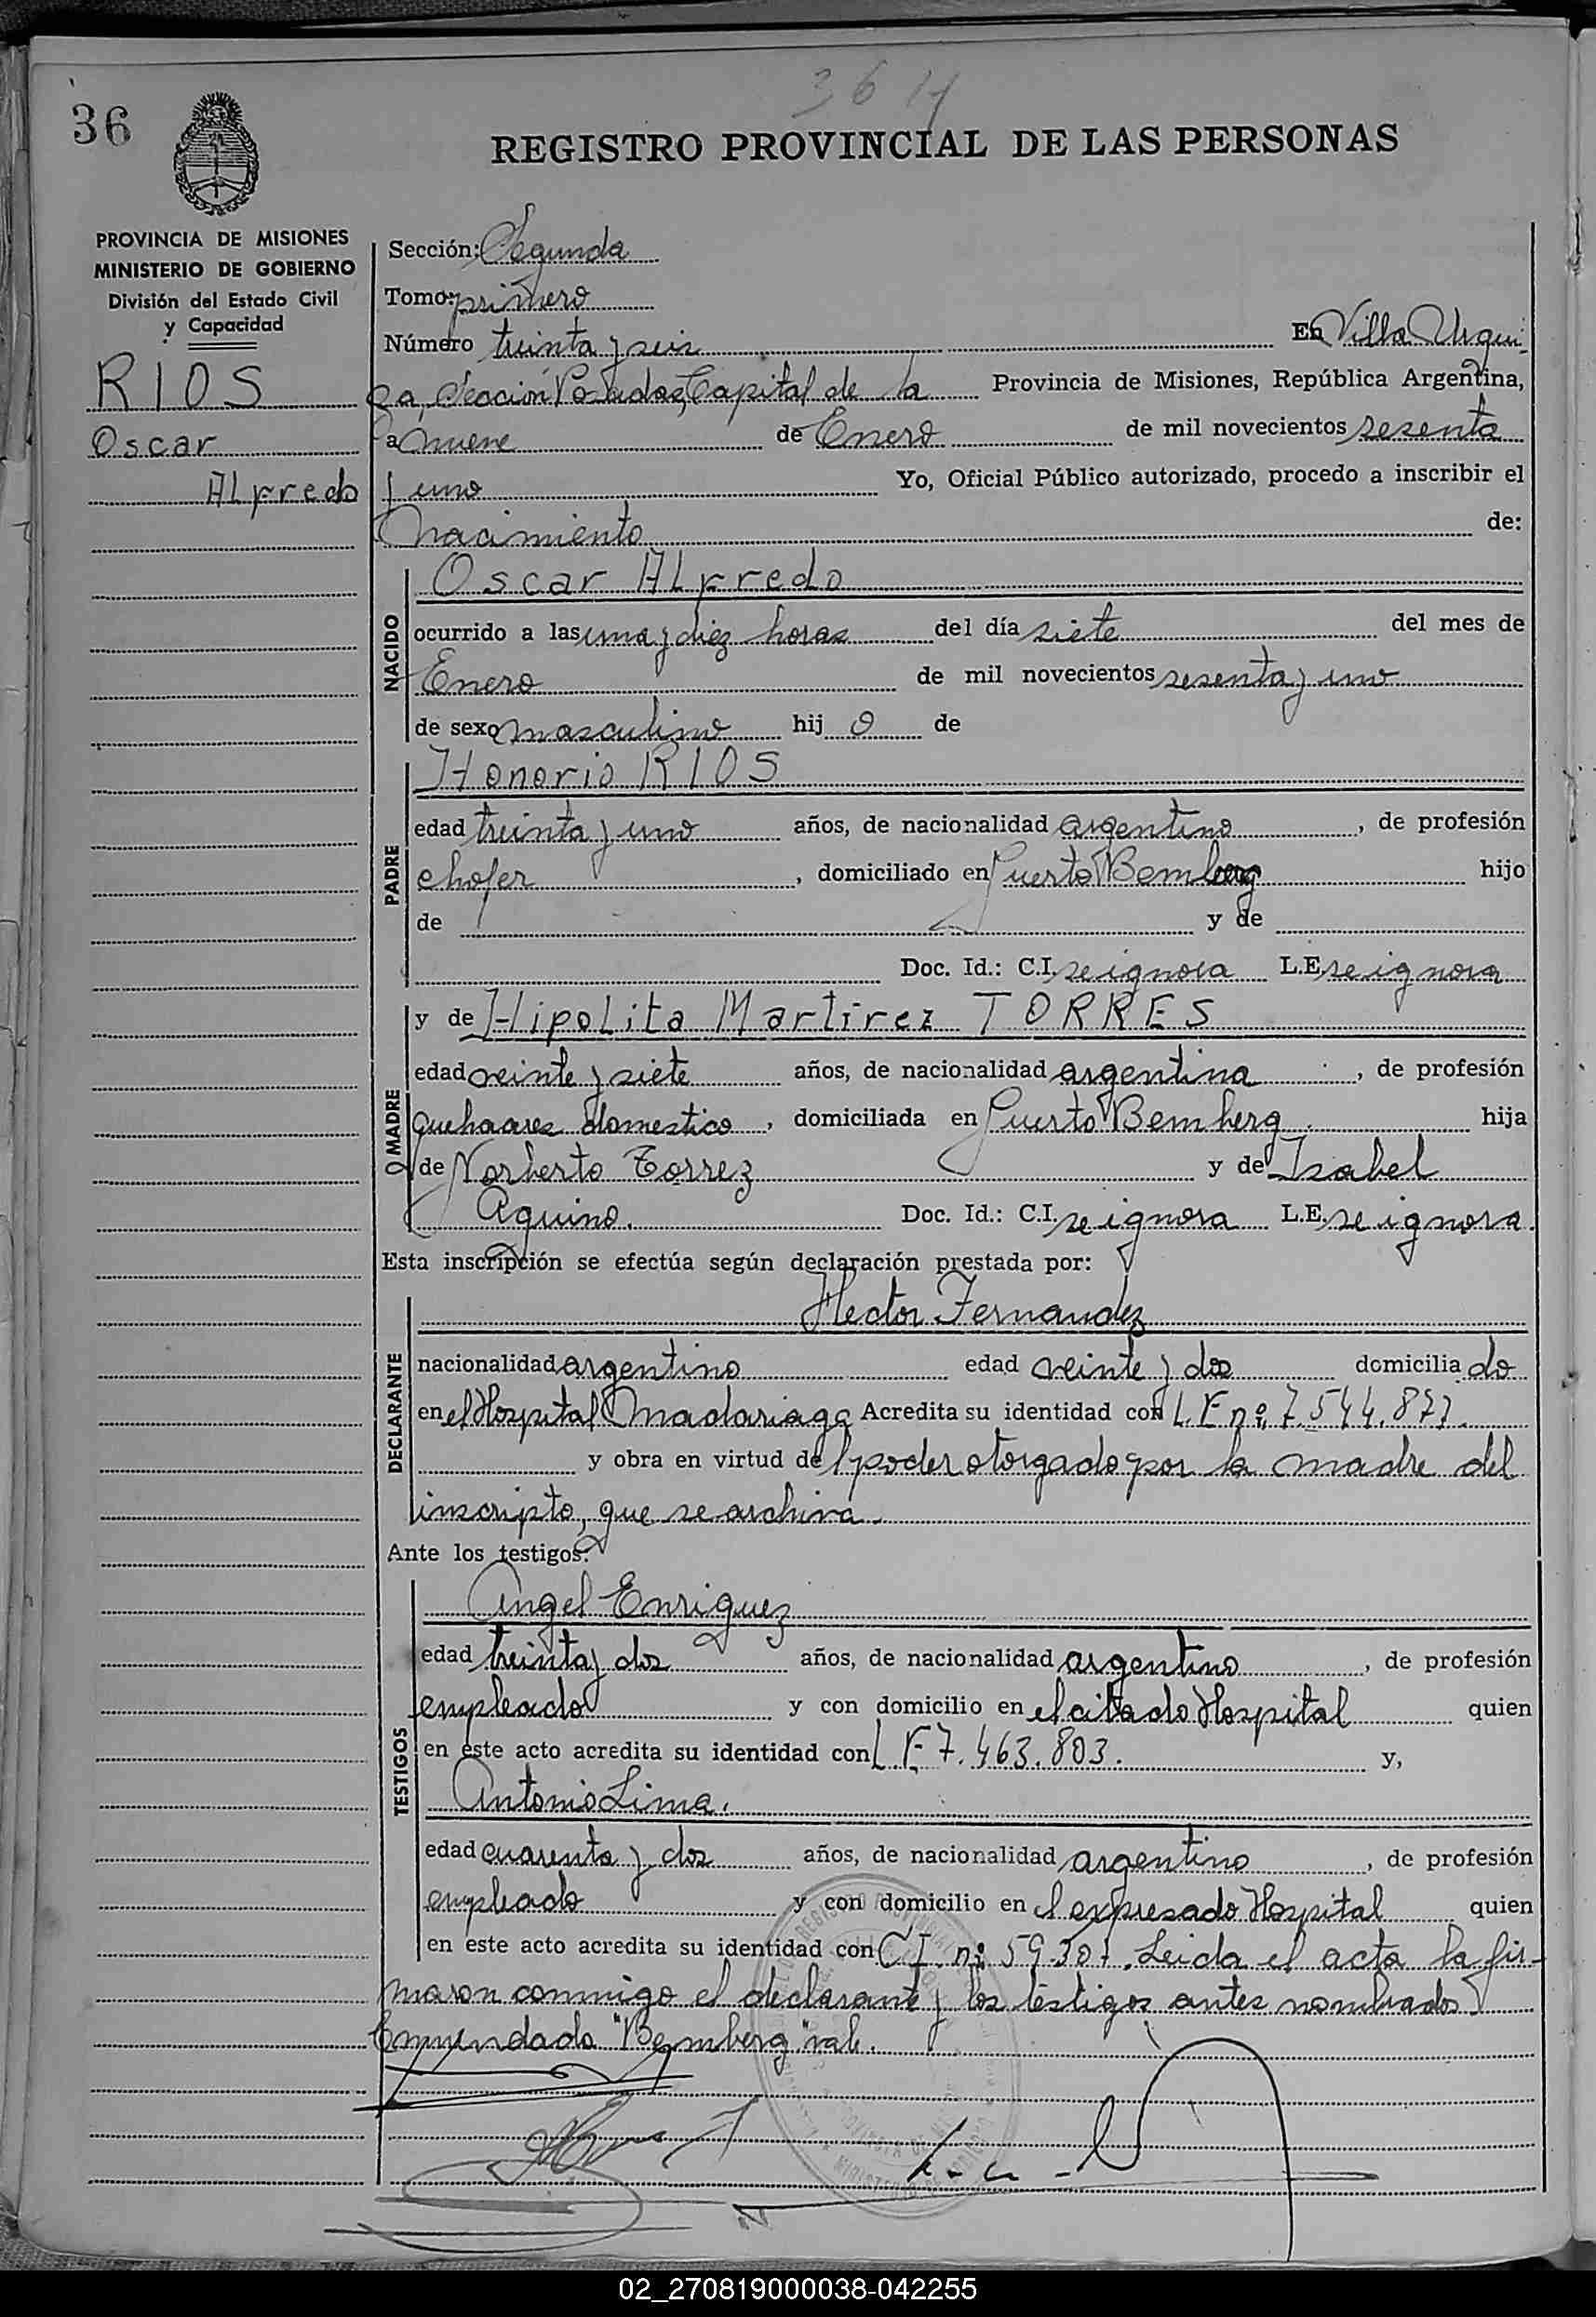 36
REGISTRO PROVINCIAL DE LAS PERSONAS
PROVINCIA DE MISIONES
MINISTERIO DE GOBIERNO
División del Estado Civil
y Capacidad
RIOS
Oscar
ALfredo
Sección: Segunda
Tomo: primero
Número treinta y seis En Villa Urqui-
za, Sección Posadas, Capital de la Provincia de Misiones, República Argentina,
a nueve de Enero de mil novecientos sesenta
y uno Yo, Oficial Público autorizado, procedo a inscribir el
Nacimiento de:
NACIDO
Oscar ALfredo
ocurrido a las una y diez horas del día siete del mes de
Enero de mil novecientos sesenta y uno
de sexo masculino hij o de
PADRE
Honorio RIOS
edad treinta y uno años, de nacionalidad argentino, de profesión
chofer, domiciliado en Puerto Bemberg hijo
de y de
Doc. Id.: C.I. se ignora L.E. se ignora
MADRE
y de HipoLita Martirez TORRES
edad veinte y siete años, de nacionalidad argentina, de profesión
quehaceres domestico, domiciliada en Puerto Bemberg hija
de Norberto Torrez y de Isabel
Aquino. Doc. Id.: C.I. se ignora L.E. se ignora.
Esta inscripción se efectúa según declaración prestada por:
DECLARANTE
Hector Fernandez
nacionalidad argentino edad veinte y dos domicilia do
en el Hospital Madariaga Acredita su identidad con L.E nº 7.544.877.
y obra en virtud de l poder otorgado por la madre del
inscripto, que se archiva.
Ante los testigos:
TESTIGOS
Angel Enriquez
edad treinta y dos años, de nacionalidad argentino, de profesión
empleado y con domicilio en el citado Hospital quien
en este acto acredita su identidad con L.E 7.463.803. y,
Antonio Lima.
edad cuarenta y dos años, de nacionalidad argentino, de profesión
empleado y con domicilio en el expresado Hospital quien
en este acto acredita su identidad con C.I. nº 59.307. Leida el acta la fir-
maron conmigo el declarante y los testigos antes nombrados
Enmendado "Bemberg" vale.
02_270819000038-042255